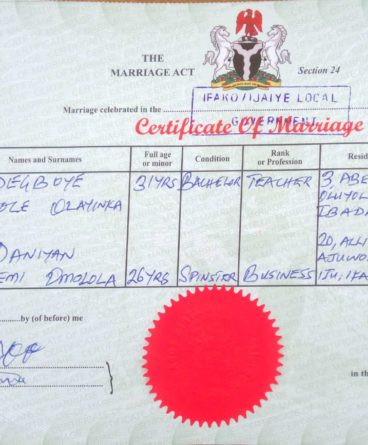 THE
MARRIAGE ACT
Section 24
Marriage celebrated in the
IFAKO/IJAIYE LOCAL
GOVERNMENT
Certificate Of Marriage
Names and Surnames Full age or minor Condition Rank or Profession Resid
DEGBOYE 31YRS BACHELOR TEACHER 3, ABE
OLE OLAYINKA OLUYOL
IBADA
DANIYAN 20, ALLI
AJUWO
EMI OMOLOLA 26YRS SPINSTER BUSINESS IJU, IFA
by (of before) me
in the